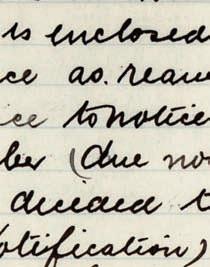 is enclosed
ce as. requ
ice to notice
ber (due no
decided t
otification)